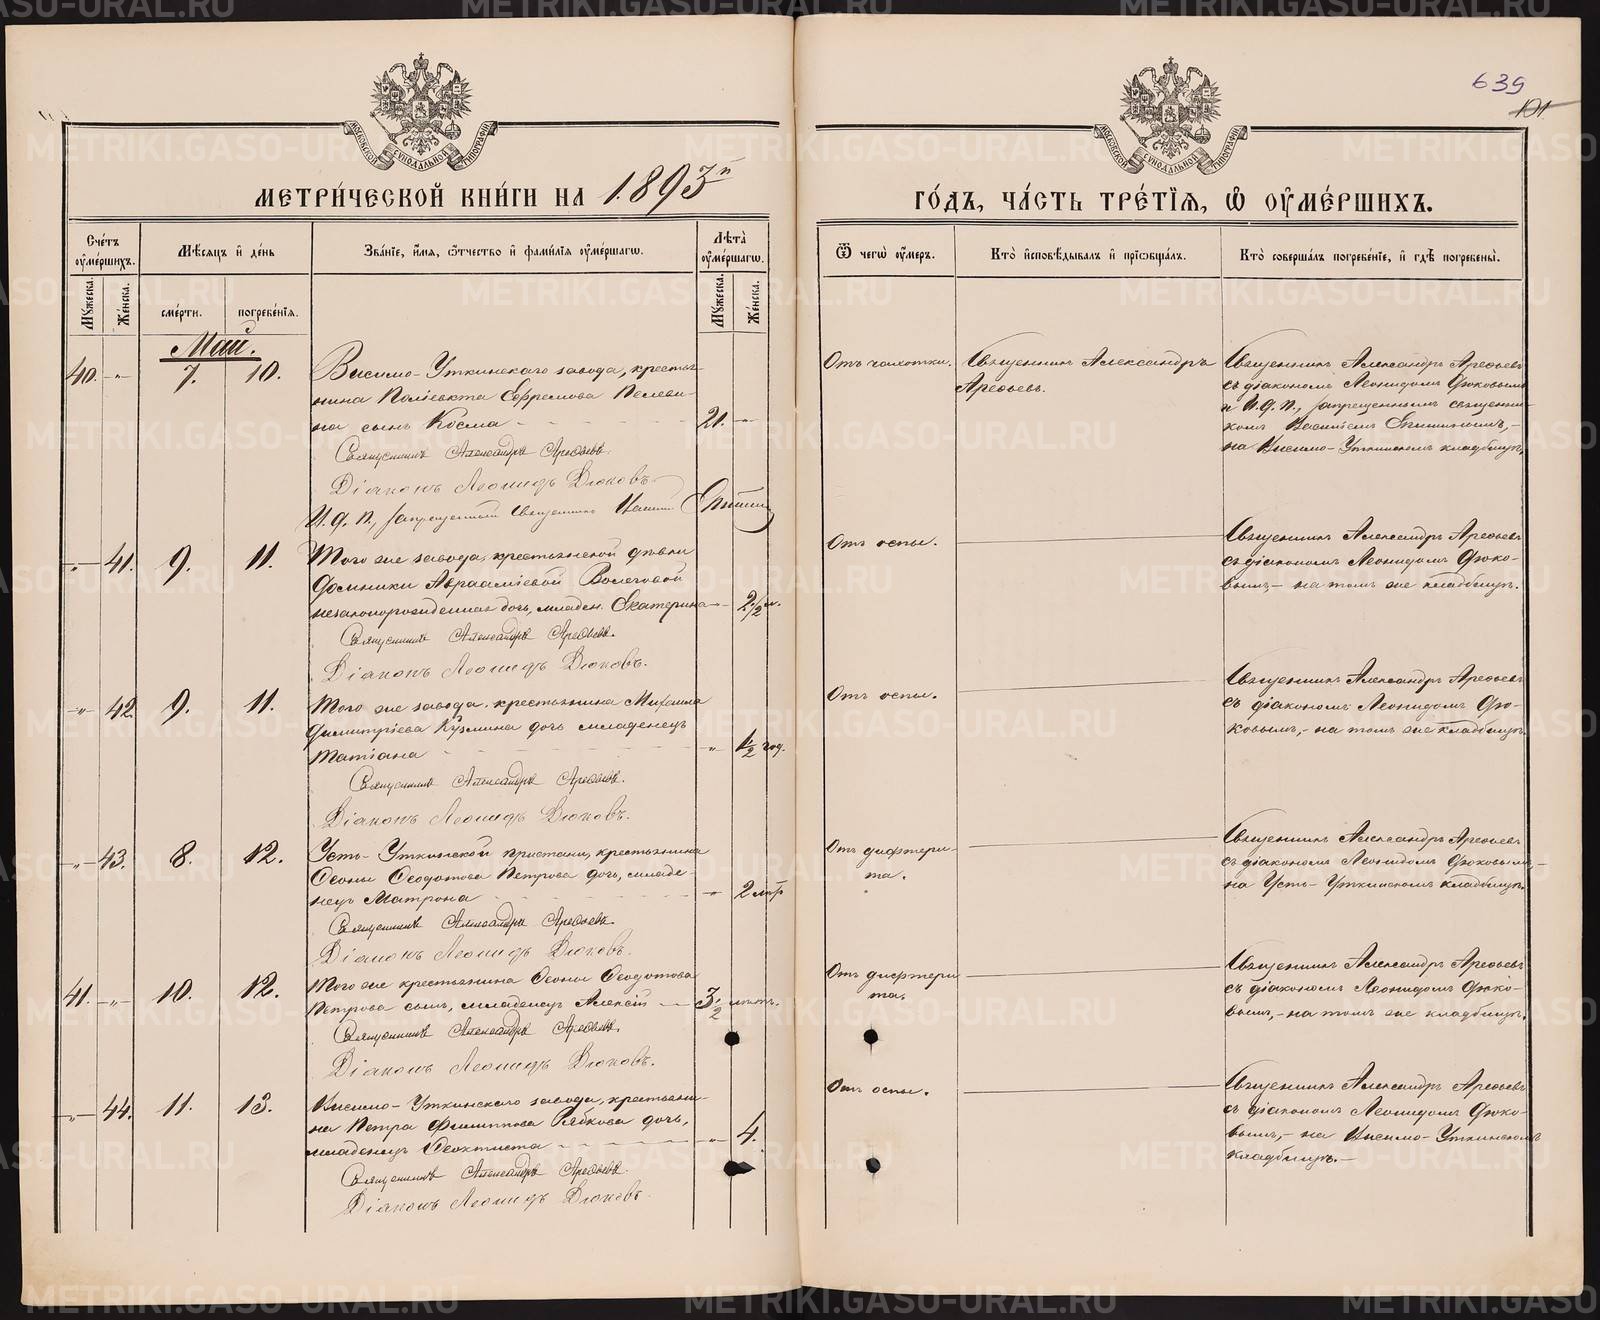 639
101
МОСКОВСКОЙ СѴНОДАЛЬНОЙ ТИПОГРАФІИ
МОСКОВСКОЙ СѴНОДАЛЬНОЙ ТИПОГРАФІИ
МЕТРИ́ЧЕСКОЙ КНИ́ГИ НА 1893й
ГО́ДЪ, ЧА́СТЬ ТРЕ́ТІЯ, Ѡ ОУМЕ́РШИХЪ.
Сче́тъ оуме́ршихъ.
Мꙋжеска.
Же́нска.
Мѣсяцъ и де́нь
сме́рти.
погребе́нія.
Зва́ніе, имя, отчество и фами́лія оуме́ршагѡ.
Лѣта̀ оуме́ршагѡ.
Мꙋжеска.
Же́нска.
Ѿ чегѡ̀ оумеръ.
Кто̀ исповѣдывалъ и пріѡбща́лъ.
Кто̀ соверша́лъ погребе́ніе, и гдѣ̀ погребены̀.
Май.
40. -„- 7. 10. Висимо-Уткинскаго завода, крестья-
нина Поліевкта Ефремова Пелеви-
на сынъ Косма 21. -„-
Священникъ Александръ Арефьевъ.
Діаконъ Леонидъ Дюковъ.
И. д. п., запрещенный священникъ
Отъ чахотки.
Священникъ Александръ
Арефьевъ.
Священникъ Александръ Арефьевъ
съ діакономъ Леонидомъ Дюковымъ
и И. д. п., запрещеннымъ священни-
комъ
на Висимо-Уткинскомъ кладбищѣ.
-„- 41. 9. 11. Того же завода, крестьянской дѣвки
Домники Авраамiевой Волеговой
незаконорожденная дочь, младен. Екатерина -„- 2 1/2 м.
Священникъ Александръ Арефьевъ.
Діаконъ Леонидъ Дюковъ.
Отъ оспы.
Священникъ Александръ Арефьевъ
съ діакономъ Леонидомъ Дюко-
вымъ,- на томъ же кладбищѣ.
-„- 42. 9. 11. Того же завода, крестьянина Михаила
Димитріева Кузмина дочь младенецъ
Татіана -„- 1 1/2 год.
Священникъ Александръ Арефьевъ.
Діаконъ Леонидъ Дюковъ.
Отъ оспы.
Священникъ Александръ Арефьевъ
съ діакономъ Леонидомъ Дю-
ковымъ,- на томъ же кладбищѣ.
-„- 43. 8. 12. Усть-Уткинской пристани, крестьянина
Ѳеоны Ѳеодотова Петрова дочь, младе-
нецъ Матрона -„- 2
Священникъ Александръ Арефьевъ
Діаконъ Леонидъ Дюковъ.
Отъ дифтери-
та.
Священникъ Александръ Арефьевъ
съ діакономъ Леонидомъ Дюковымъ,-
на Усть-Уткинскомъ кладбищѣ.
41. -„- 10. 12. Того же крестьянина Ѳеоны Ѳеодотова
Петрова сынъ, младенецъ Алексій 3 1/2 лѣтъ.
Священникъ Александръ Арефьевъ.
Діаконъ Леонидъ Дюковъ.
Отъ дифтери-
та.
Священникъ Александръ Арефьевъ
съ діакономъ Леонидомъ Дюко-
вымъ,- на томъ же кладбищѣ.
-„- 44. 11. 13. Висимо-Уткинскаго завода, крестьяни-
на Петра Филиппова Рябкова дочь,
младенецъ Ѳеоктиста -„- 4.
Священникъ Александръ Арефьевъ.
Діаконъ Леонидъ Дюковъ.
Отъ оспы.
Священникъ Александръ Арефьевъ
съ діакономъ Леонидомъ Дюко-
вымъ,- на Висимо-Уткинскомъ
кладбищѣ.-
METRIKI.GASO-URAL.RU